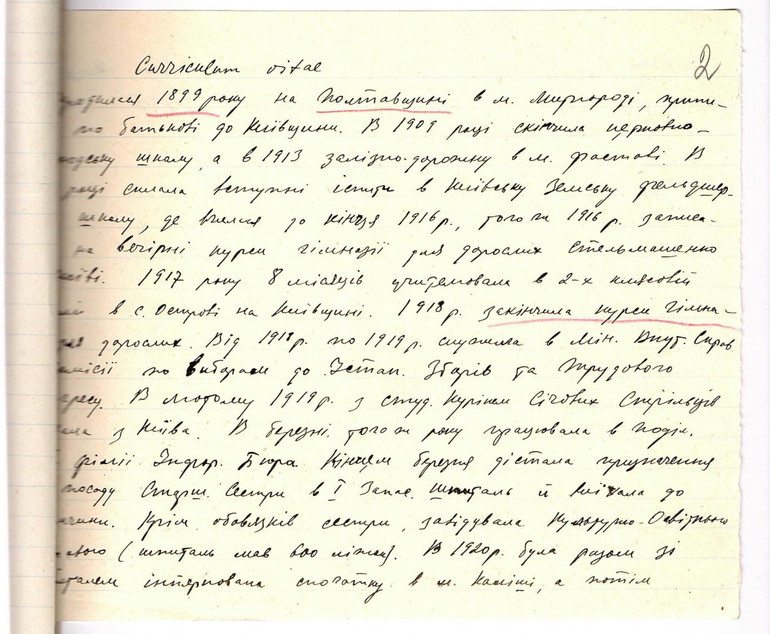 2
Curriculum vitae
1899 року на Полтавщині в м. Миргороді, припи-
по батькові до Київщини. В 1909 році скінчила церковно-
школу, а в 1913 залізно-дорожну в м. Фастові. В
році склала вступні іспити в Київську Земську фельдшер.
школу, де вчилася до кінця 1916 р., того ж 1916 р. записа-
на вечірні курси гімназії для дорослих Стельмашенко
1917 року 8 місяців учителювала в 2-х клясовій
в с. Острові на Київщині. 1918 р. закінчила курси гімна-
дорослих. Від 1918 р. по 1919 р. служила в Мін. Внут. Справ
по виборам до Устан. Зборів та Трудового
В лютому 1919 р. з студ. Куріном Січових Стрільців
з Київа. В березні того ж року працювала в
Інфор. Бюра. Кінцем березня дістала призначення
посаду Старш. Сестри в I Запас. Шпиталь й виїхала до
Крім обовязків сестри, завідувала Культурно-Освітнього
(шпиталь мав 600 ліжок). В 1920 р. була разом зі
інтернована спочатку в м. Каліші, а потім